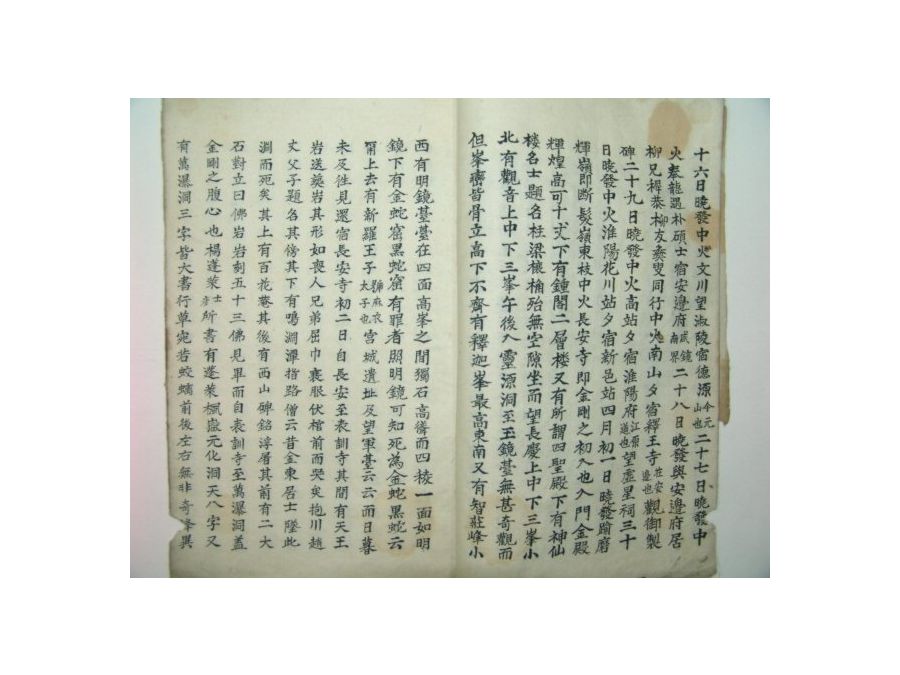 十六日曉發中火文川望淑陵宿德源今元山也二十七日曉發中
火奉龍遇朴碩士宿安邊府咸鏡南界二十八日曉發與安邊府居
柳兄栂恭柳友養叟同行中火南山夕宿釋王寺在安邊也觀御製
碑二十九日曉發中火高站夕宿淮陽府江原道也望虛星祠三十
日曉發中火淮陽花川站夕宿新邑站四月初一日曉發踰磨
輝嶺即斷髮嶺東枝中火長安寺即金剛之初入也入門金殿
輝煌高可十丈下有鍾閣二層楼又有所謂四聖殿下有神仙
楼名士題名柱梁榱桷殆無空隙坐而望長慶上中下三峯小
北有觀音上中下三峯午後入靈源洞至玉鏡臺無甚奇觀而
但峯巒皆骨立高下不齊有釋迦峯最高東南又有智莊峰小
西有明鏡臺臺在四面高峯之間獨石高擣而四棱一面如明
鏡下有金蛇窟黑蛇窟有罪者照明鏡可知死為金蛇黑蛇云
爾上去有新羅王子麻衣太子也宮城遺址及望軍臺云云而日暮
未及徃見還宿長安寺初二日自長安至表訓寺其間有天王
岩送葬岩其形如喪人兄弟屈巾裹服伏棺前而哭矣抱川趙
丈父子題名其傍其下有鳴淵潭指路僧云昔金東居士墜此
淵而死矣其上有百花菴其後有西山碑銘浮屠其前有二大
石對立曰佛岩岩刻五十三佛見畢而自表訓寺至萬瀑洞盖
金剛之腹心也楊蓬萊士彦所書有蓬萊楓嶽元化洞天八字又
有萬瀑洞三字皆大書行草宛若蛟螭前後左右無非奇峰異